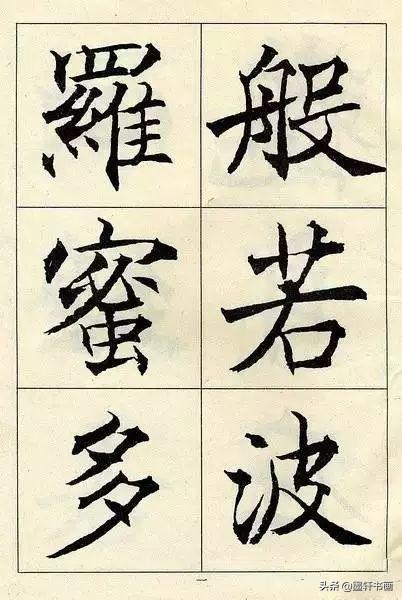 般若波
羅蜜多
一
头条 @墨轩书画